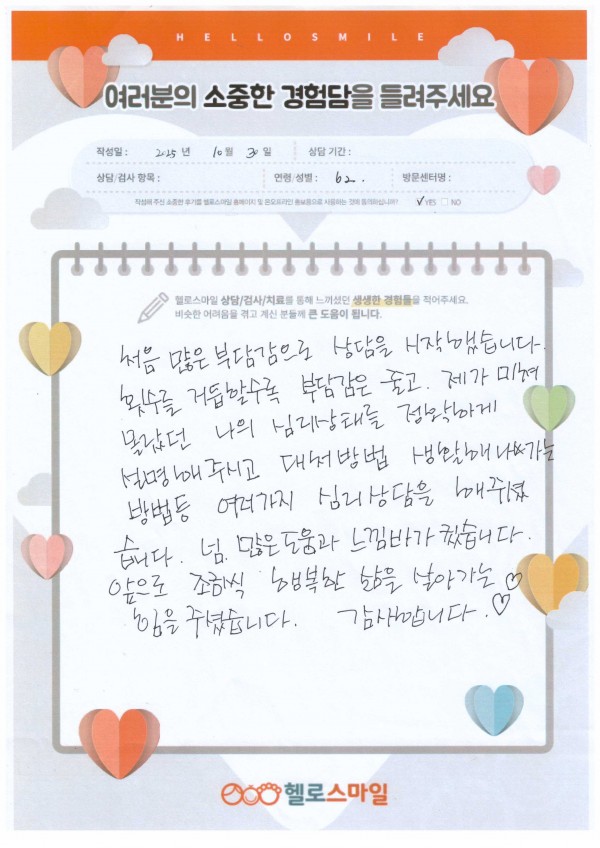 HELLOSMILE
여러분의 소중한 경험담을 들려주세요
작성일 : 2025 년 10 월 30 일 상담 기간 :
상담/검사 항목 : 연령/성별 : 62. 방문센터명 :
작성해 주신 소중한 후기를 헬로스마일 홈페이지 및 온오프라인 홍보용으로 사용하는 것에 동의하십니까? ✓ YES □ NO
헬로스마일 상담/검사/치료를 통해 느끼셨던 생생한 경험들을 적어주세요.
비슷한 어려움을 겪고 계신 분들께 큰 도움이 됩니다.
처음 많은 부담감으로 상담을 시작했습니다.
횟수를 거듭할수록 부담감은 줄고. 제가 미쳐
몰랐던 나의 심리상태를 정확하게
설명해 주시고 대처방법 생활해 나가는
방법등 여러가지 심리상담을 해주셨
습니다. 넘. 많은 도움과 느낌바가 컸습니다.
앞으로 조금씩 행복한 삶을 살아가는 ♡
힘을 주셨습니다. 감사합니다. ♡
헬로스마일